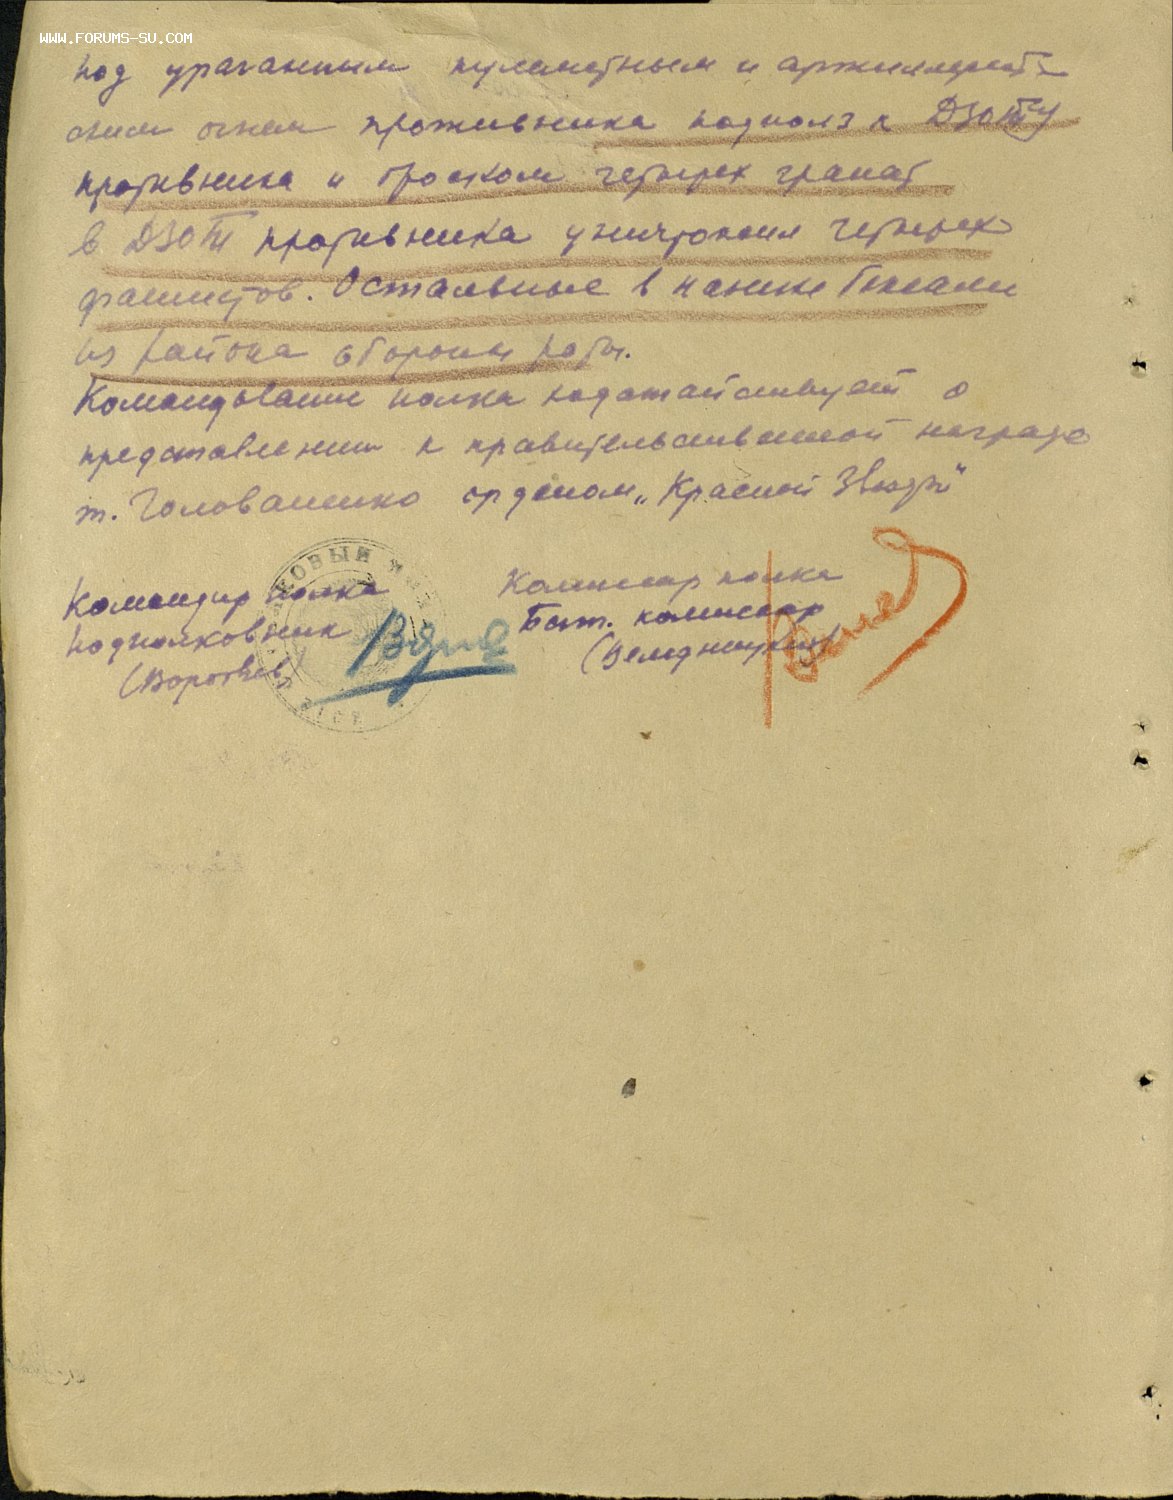 WWW.FORUMS-SU.COM
под ураганным пулеметным и артиллерий-
ским огнем противника подполз к ДЗОТу
противника и броском четырех гранат
в ДЗОТ противника уничтожил четырех
фашистов. Остальные в панике бежали
из района обороны роты.
Командование полка ходатайствует о
представлении к правительственной награде
т. Головашенко орденом „Красной Звезды"
Командир полка
подполковник
Комиссар полка
Бат. комиссар